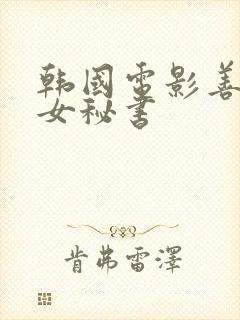 韩國電影善
女秘書
肯弗雷澤